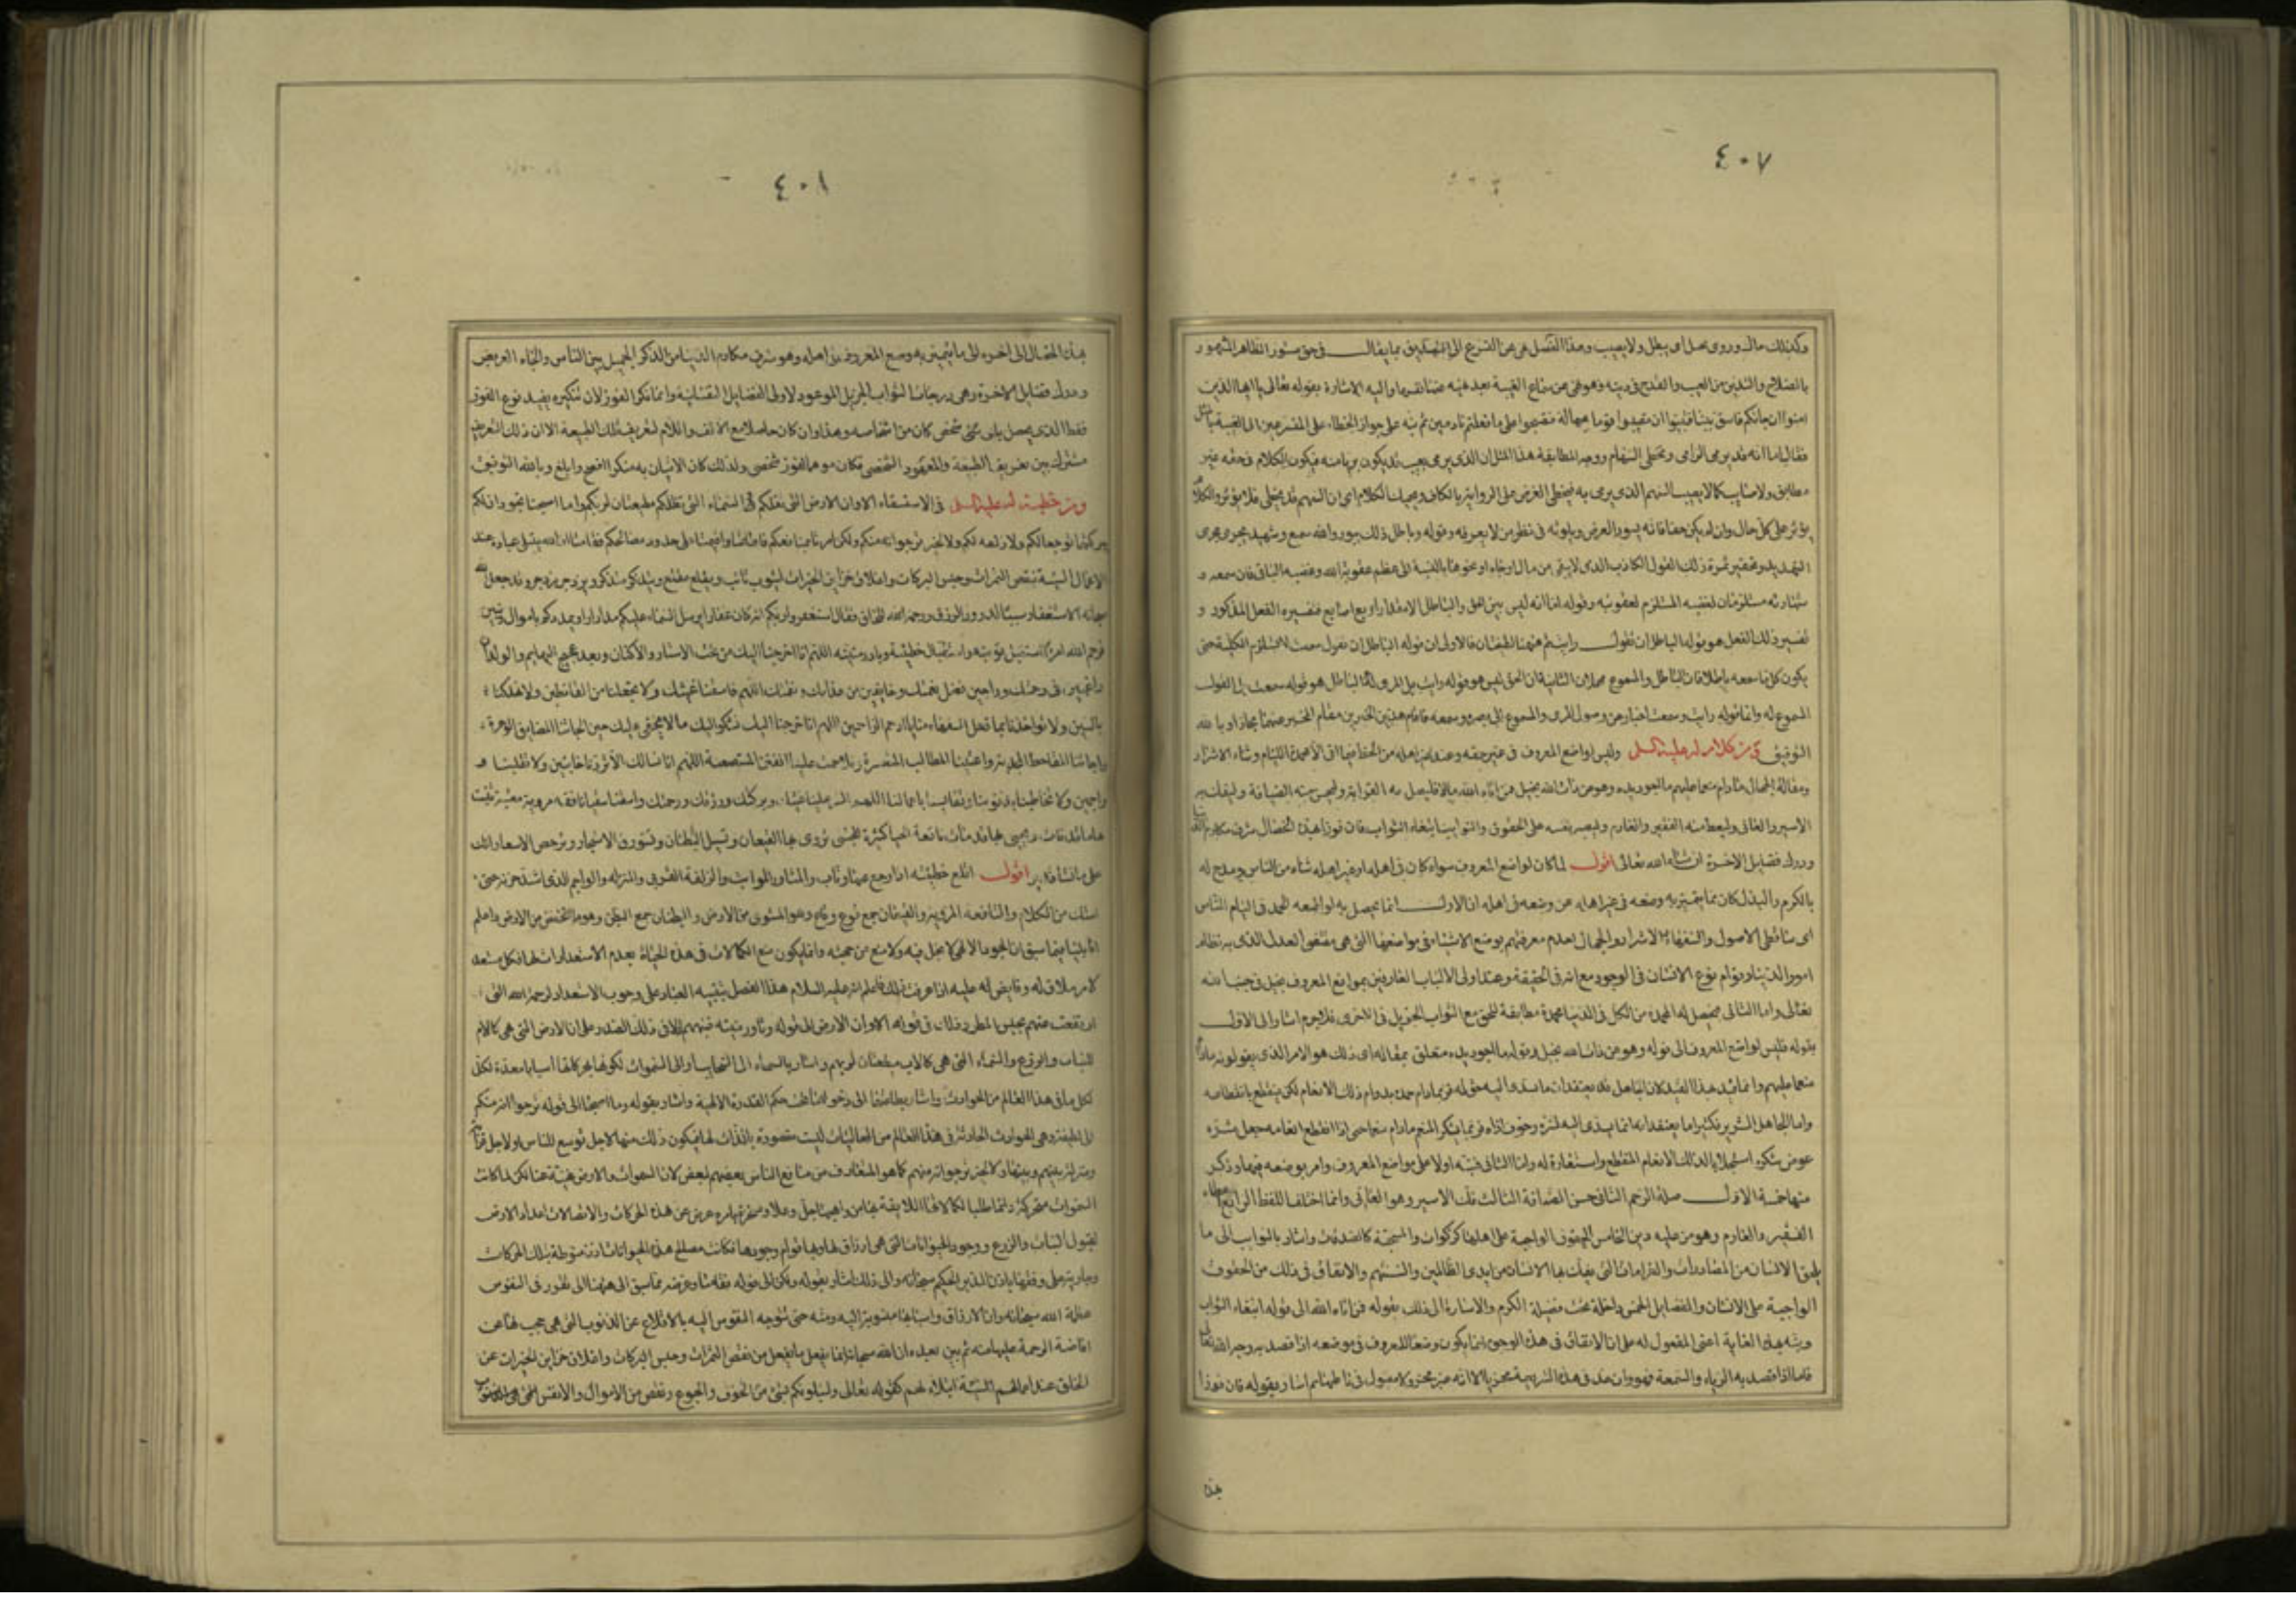 ٤٠٧
وكذلك مال وروى يحيل اى يبطل ولا يصيب وهذا الفصل نهى عن التسرع الى التصديق بما يقال فى حق مستور الظاهر المشهور
بالصلاح والتدين من العيب والقدح فى دينه وهو نهى عن سماع الغيبة بعد نهيه عنها نفسها واليه الاشارة بقوله تعالى يا ايها الذين
امنوا ان جائكم فاسق بنبأ فتبينوا ان تصيبوا قوما بجهالة فتصبحوا على ما فعلتم نادمين ثم نبه على جواز الخطاء على المتسرعين الى الغيبة بالمثل
فقال اما انه قد يرمى الرامى وتخطى السهام ووجه المطابقة هذا المثل ان الذى يرمى بعيب قد يكون بريا منه فيكون الكلام فى حقه غير
مطابق ولا صائب كما لا يصيب السهم الذى يرمى به فيخطى الغرض وعلى الرواية بالكاف ويحيك الكلام اى ان السهم قد يخطى فلا يؤثر والكلام
يؤثر على كل حال وان لم يكن حقا فانه يسود العرض ويلوثه فى نظر من لا يعرفه وقوله وباطل ذلك يبور والله سميع وشهيد يجرى مجرى
التهديد وتحقير ثمرة ذلك القول الكاذب الذى لا يبقى من مال او جاه او نحوهما بالنسبة الى عظم عقوبة الله وغضبه الباقى فان سمعه و
شهادته مستلزمان لغضبه المستلزم لعقوبته وقوله اما انه ليس بين الحق والباطل الا مقدار اربع اصابع فتفسيره الفعل المذكور و
تفسير ذلك الفعل هو قوله الباطل ان تقول رايت ثم هيهنا لطيفتان فالاولى ان قوله الباطل ان تقول سمعت لا يستلزم الكلية حتى
يكون كل ما سمعه باطلا فان الباطل والمسموع مهملان الثانية ان الحق ليس هو قوله رايت بل المرئى له والباطل هو قوله سمعت بل القول
المسموع له وانما قوله رايت وسمعت اخبار عن وصول المرئى والمسموع الى بصره وسمعه فاقام هذين الخبرين مقام المخبر عنهما مجازا وبالله
التوفيق ومن كلام له عليه السلم وليس لواضع المعروف فى غير حقه وعند غير اهله من الحظ فيما اتى الا محمدة اللئام وثناء الاشرار
ومقالة الجهال ما دام منعما عليهم ما اجود يده وهو عن ذات الله بخيل فمن اتاه الله مالا فليصل به القرابة وليحسن منه الضيافة وليفك به
الاسير والعانى وليعط منه الفقير والغارم وليصبر نفسه على الحقوق والنوايب ابتغاء الثواب فان فوزا بهذه الخصال شرف مكارم الدنيا
ودرك فضايل الاخرة ان شاء الله تعالى اقول لما كان لواضع المعروف سواء كان فى اهله او غير اهله ثناء من الناس ومدح له
بالكرم والبذل كان مما يتميز به وضعه فى غير اهله عن وضعه فى اهله ان الاول انما يحصل به لواضعه الحمد من اللئام الناس
اى سافلى الاصول والسفهاء والاشرار والجهال لعدم معرفتهم بوضع الاشياء فى مواضعها التى هى مقتضى العدل الذى به نظام
امور الدنيا وقوام نوع الانسان فى الوجود مع انه فى الحقيقة وعند اولى الالباب العارفين بمواقع المعروف بخيل فى جنب الله
تعالى واما الثانى فيحصل له المحمدة من الكل فى الدنيا محمدة مطابقة للحق مع الثواب الجزيل فى الاخرى فلا جرم اشار الى الاول
بقوله فليس لواضع المعروف الى قوله وهو عن ذات الله بخيل وقوله ما اجود يده متعلق بمقاله اى ذلك هو الامر الذى يقولونه ما دام
منعما عليهم وانما قيد هذا القيد لان الجاهل قد يعتقد ان ما يسدى اليه حق له فربما دام حمده بدوام ذلك الانعام لكن ينقطع بانقطاعه
واما الجاهل الشرير فكثيرا ما يعتقد انه انما يسدى اليه لشره وخوف اذاه فربما يشكر المنعم ما دام منعما حتى اذا انقطع انعامه جعل شره
عوض شكره استجلابا لذلك الانعام المنقطع واستعادة له واما الثانى فنبه اولا على مواضع المعروف وامر بوضعه فيها وذكر
منها خمسة الاول صلة الرحم الثانى حسن الضيافة الثالث فك الاسير وهو العانى وانما اختلف اللفظ الرابع اعطاء
الفقير والغارم وهو من عليه دين الخامس الحقوق الواجبة على اهلها كزكوات والمستحبة كالصدقات واشار بالنوايب الى ما
يلحق الانسان من المصادرات والغرامات التى يفك بها الانسان من ايدى الظالمين والسنتهم والانفاق فى ذلك من الحقوق
الواجبة على الانسان والفضايل الخمس داخلة تحت فضيلة الكرم والاشارة الى ذلك بقوله فمن اتاه الله الى قوله ابتغاء الثواب
ونبه بهذه الغاية اعنى المفعول له على ان الانفاق فى هذه الوجوه انما يكون وضعا للمعروف فى موضعه اذا قصد به وجه الله تعالى
فاما اذا قصد به الرياء والسمعة فهو وان عد فى هذا الشريعة مجزيا الا انه غير مجز ولا مقبول فى باطنها ثم اشار بقوله فان فوزا
بهذه
٤٠٨
بهذه الخصال الى اخره الى ما يتميز به وضع المعروف فى اهله وهو شرف مكارم الدنيا من الذكر الجميل بين الناس والجاه العريض
ودرك فضايل الاخرة وهى درجات الثواب الجزيل الموعود لاولى الفضايل النفسانية وانما نكر الفوز لان تنكيره يفيد نوع الفوز
فقط الذى يحصل باى شخص كان من اشخاصه وهذا وان كان حاصلا مع الالف واللام لتعريف تلك الطبيعة الا ان ذلك التعريف
مشترك بين تعريف الطبيعة والمعهود الشخصى فكان موهما لفوز شخصى ولذلك كان الاتيان به منكرا افصح وابلغ وبالله التوفيق
ومن خطبة له عليه السلم فى الاستسقاء الا وان الارض التى تقلكم والسماء التى تظلكم مطيعتان لربكم وما اصبحتا تجودان لكم
ببركتهما توجعا لكم ولا زلفة لكم ولا لخير ترجوانه منكم ولكن امرتا بمنافعكم فاطاعتا واقيمتا على حدود مصالحكم فقامتا ان الله يبتلى عباده عند
الاعمال السيئة بنقص الثمرات وحبس البركات واغلاق خزاين الخيرات ليتوب تائب ويقلع مقلع ويتذكر متذكر ويزدجر مزدجر وقد جعل الله
سبحانه الاستغفار سببا لدرور الرزق ورحمة الله للخلق فقال استغفروا ربكم انه كان غفارا يرسل السماء عليكم مدرارا ويمددكم باموال وبنين
فرحم الله امرءا استقبل توبته واستقال خطيئته وبادر منيته اللهم انا خرجنا اليك من تحت الاستار والاكنان وبعد عجيج البهايم والولدان
راغبين فى رحمتك وراجين فضل نعمتك وخايفين من عذابك ونقمتك اللهم فاسقنا غيثك ولا تجعلنا من القانطين ولا تهلكنا
بالسنين ولا تؤاخذنا بما فعل السفهاء منا يا ارحم الراحمين اللهم انا خرجنا اليك نشكو اليك ما لا يخفى عليك حين الجاتنا المضايق الوعرة
واجائتنا المقاحط المجدبة واعيتنا المطالب المتعسرة وتلاحمت علينا الفتن المستصعبة اللهم انا نسالك الا تردنا خايبين ولا تقلبنا و
اجمين ولا تخاطبنا بذنوبنا وتقايسنا باعمالنا اللهم انشر علينا غيثك وبركتك ورزقك ورحمتك واسقنا سقيا نافعة مروية معشبة تنبت
بها ما قد فات وتحيى بها ما قد مات نافعة الحيا كثيرة المجتنى تروى بها القيعان وتسيل البطنان وتستورق الاشجار وترخص الاسعار انك
على ما تشاء قدير اقول اقلع خطيئته اذا رجع عنها وتاب والمثاور المواثب والزلفة القربى والمنزلة والواجم الذى اشتد حزنه حتى
امسك من الكلام والقيعان جمع قوع وقاع وهو المستوى من الارض والبطنان جمع البطن وهو ما انخفض من الارض واعلم
انا بينا فيما سبق ان الجود الالهى لا بخل فيه ولا منع من جهته وانما يكون منع الكمالات فى هذه الحياة بعدم الاستعداد لها فكل مستعد
لامر ملاق له وفايض له عليه اذا عرفت ذلك فاعلم انه عليه السلام هذا الفصل بتنبيه العباد على وجوب الاستعداد لرحمة الله التى
ارتفعت عنهم بحبس المطر وذلك فى قوله الا وان الارض الى قوله وبادر منيته فنبههم اولا فى ذلك الصدر على ان الارض التى هى كالام
للنبات والزرع والسماء التى هى كالاب مطيعتان لربهم واشار بالسماء الى السحاب او الى السموات لكونها بحركاتها اسبابا معدة لكل
ما فى هذا العالم من الحوادث واشار بطاعتهما الى دخولهما تحت حكم القدرة الالهية واشار بقوله وما اصبحتا الى قوله ترجوانه منكم
الى لطيفة وهى الحوادث الحادثة فى هذا العالم من العاليات ليست مقصودة بالذات لها فيكون ذلك منها لاجل توجع للناس او لاجل قرابة
ومنزلة بينهم وبينها ولا لخير ترجوانه منهم كما هو المتعارف من منافع الناس بعضهم لبعض لان السموات والارض غنية عنا لكن لما كانت
السموات متحركة دائما طلبا لكمالاتها اللايقة بها من واهبها جل وعلا ومسخرة بامره عرض عن هذه الحركات والاتصالات اعداد الارض
لقبول النبات والزرع ووجود الحيوانات التى هى ارزاق لها وبها قوام وجودها فكانت مصالح هذه الحيوانات اذن منوطة بتلك الحركات
وجارية على وفقها باذن المدبر الحكيم سبحانه والى ذلك اشار بقوله ولكن الى قوله فقامتا وغرضه مما سبق الى هيهنا ان يقرر فى النفوس
عظمة الله سبحانه وان الارزاق واسبابها منسوبة اليه ومنه حتى تتوجه النفوس اليه بالاقلاع عن الذنوب التى هى حجب لها عن
افاضة الرحمة عليها منه ثم بين بعيده ان الله سبحانه انما يفعل ما يفعل من نقص الثمرات وحبس البركات واغلاق خزاين الخيرات عن
الخلق عند اعمالهم السيئة ابتلاء لهم كقوله تعالى ولنبلونكم بشئ من الخوف والجوع ونقص من الاموال والانفس